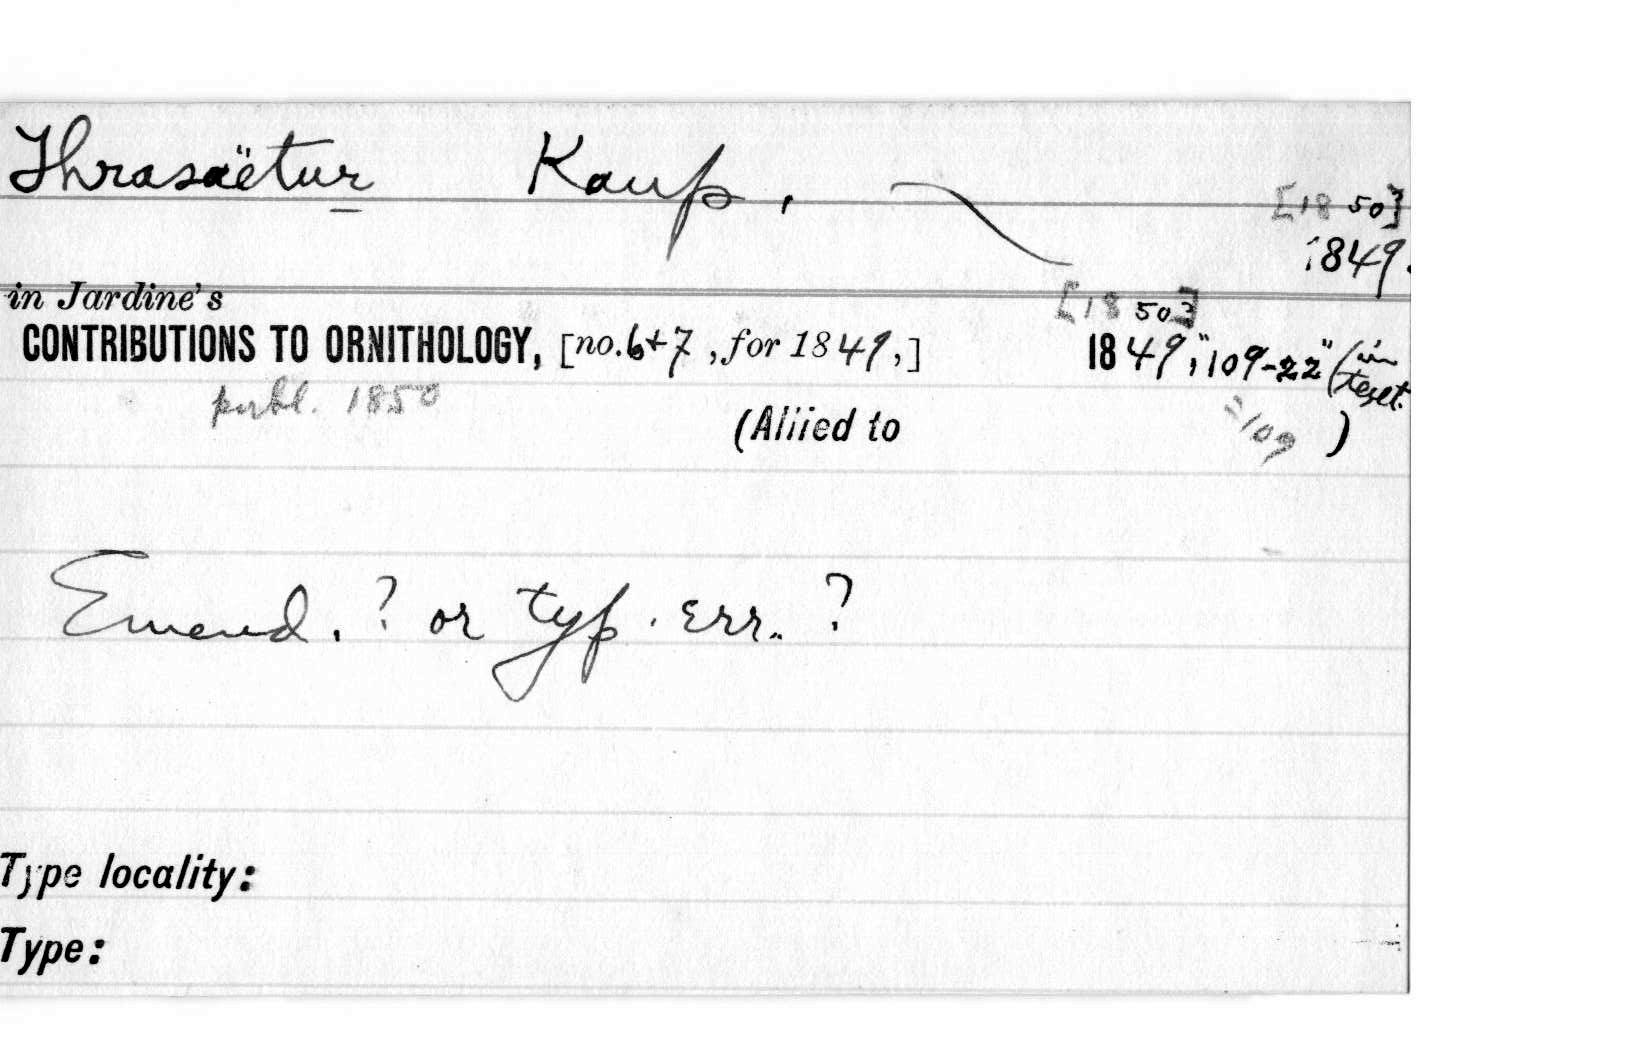 Thrasaëtur Kaup,
[1850]
1849.
in Jardine's
[1850]
CONTRIBUTIONS TO ORNITHOLOGY, [no. 6+7, for 1849,] 1849, "109-22" (in text.
publ. 1850
=109
(Allied to )
Emend. ? or typ. err.. ?
Type locality:
Type: